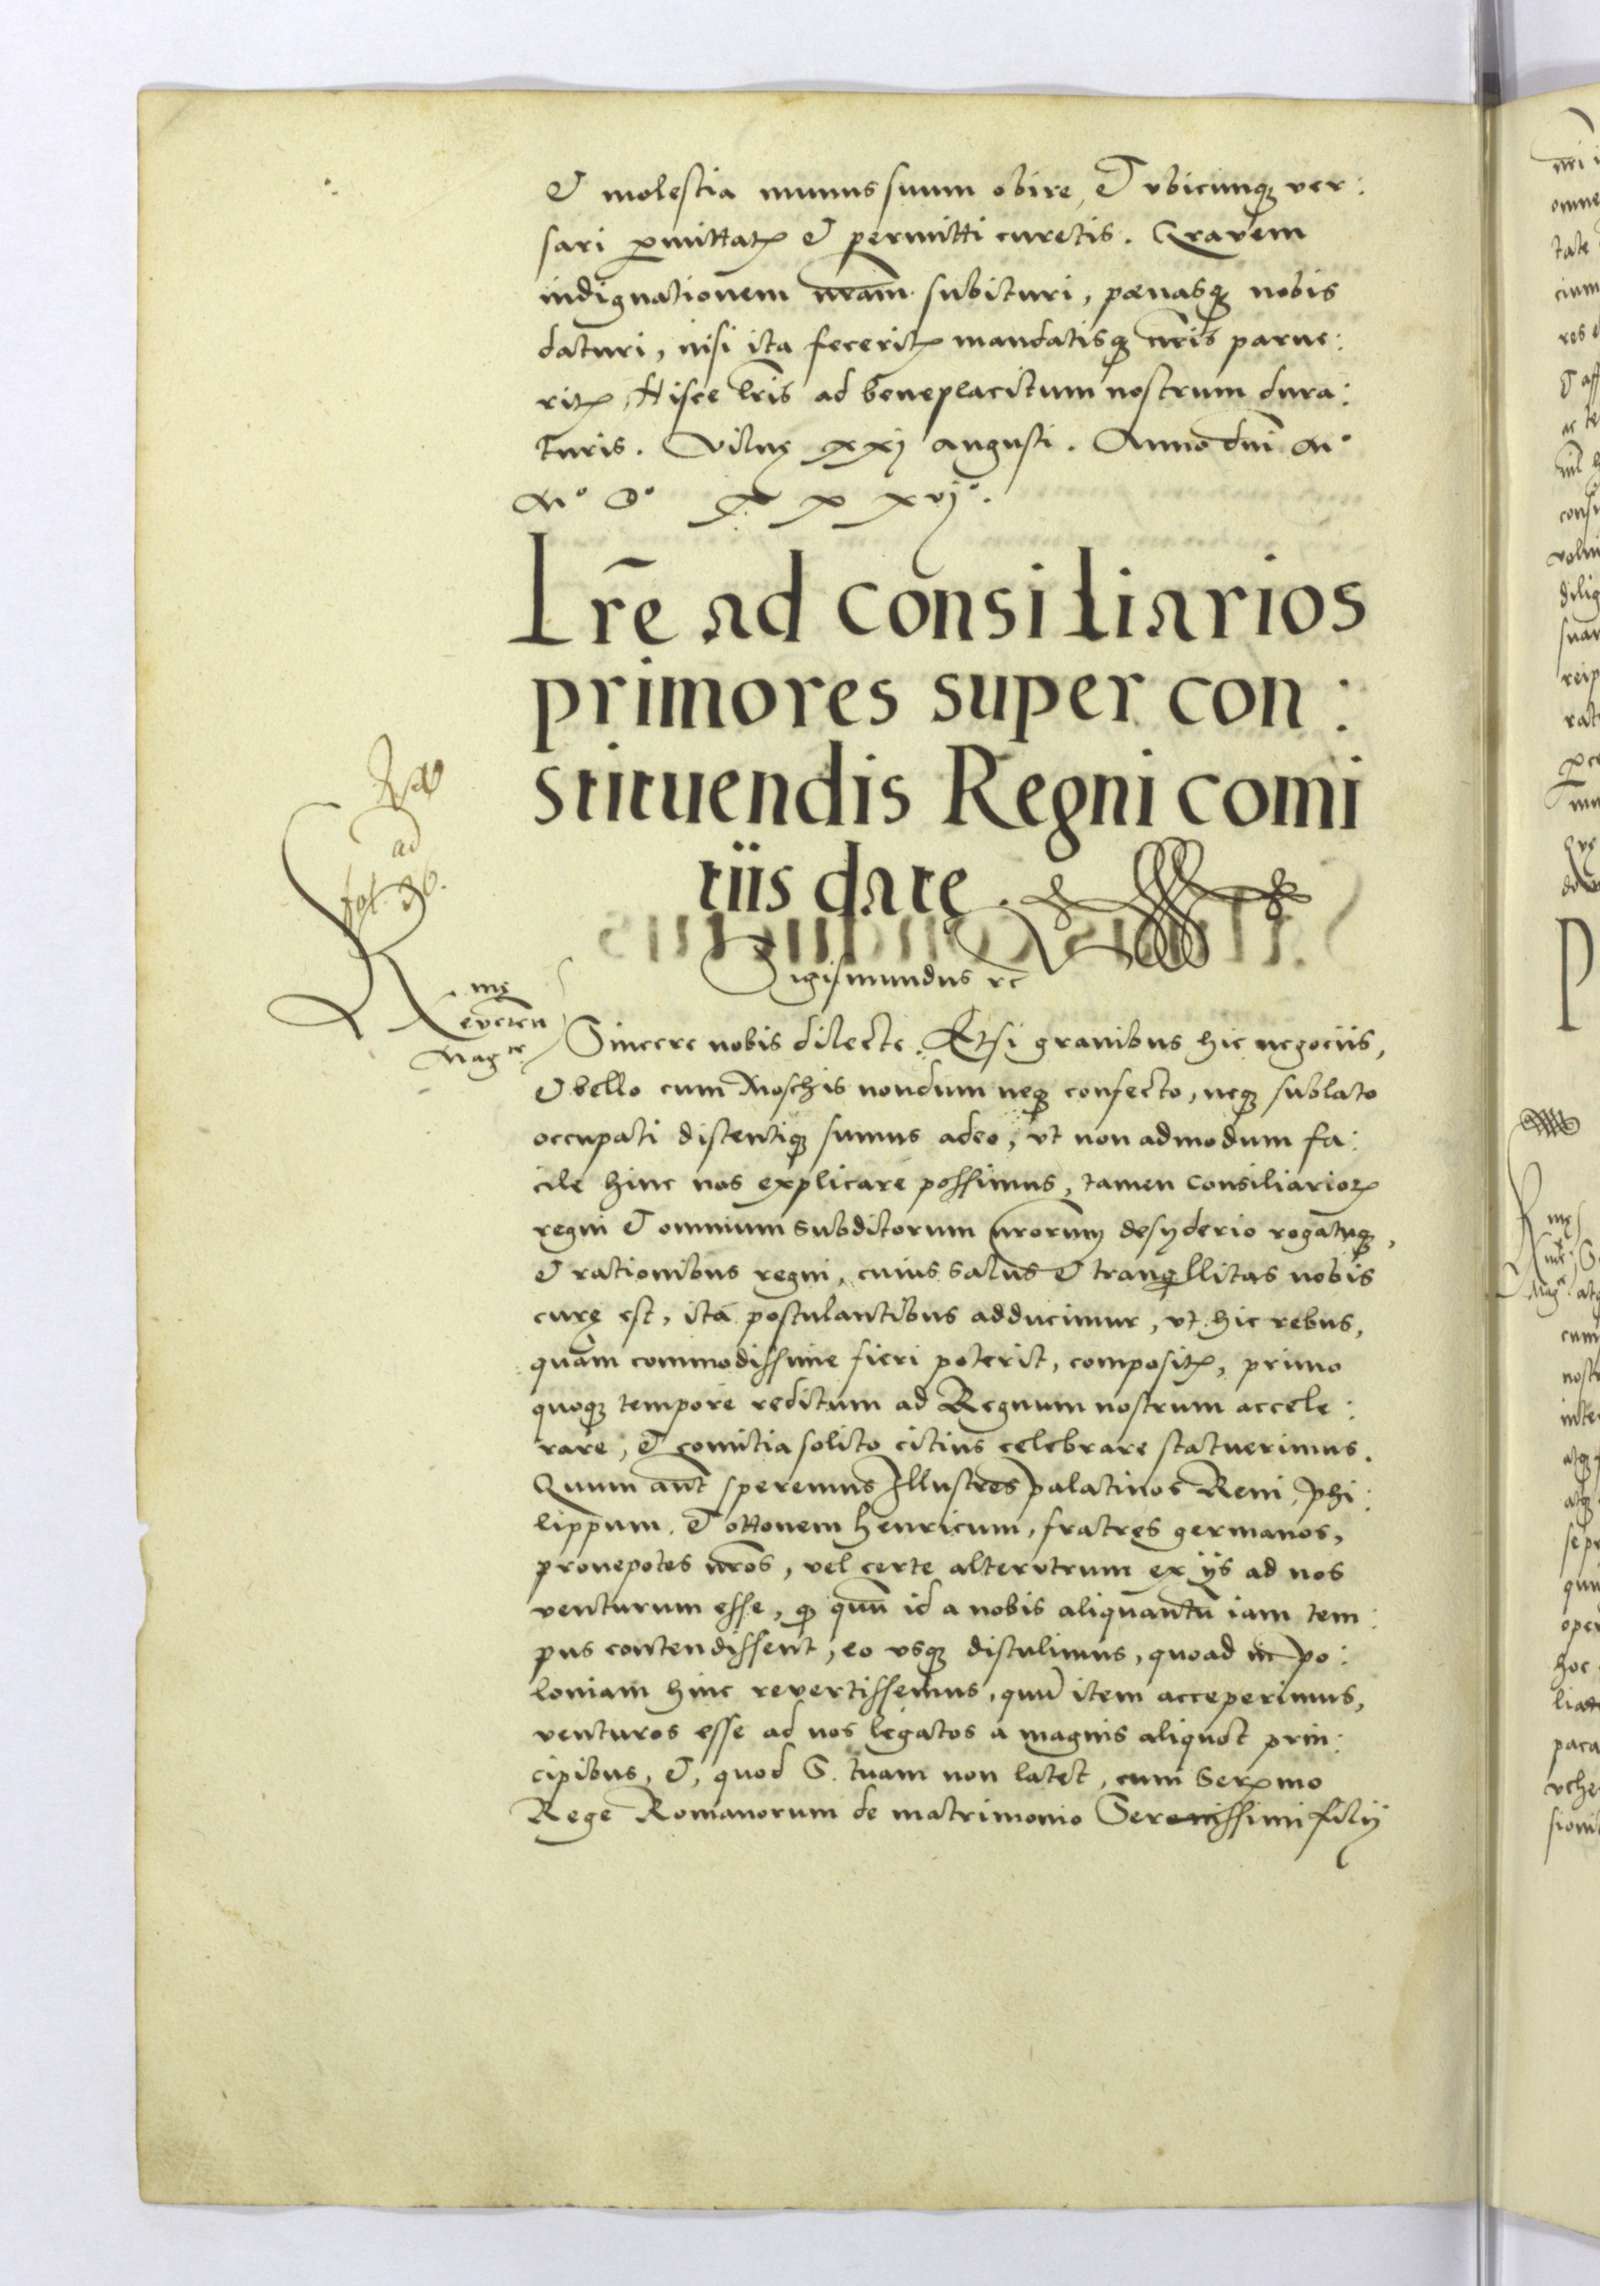 & molestia munus suum obire, & vbicunq; ver:
sari p̄mittatꝭ & permitti curetis. Gravem
indignationem nr̃am subituri, pœnasq; nobis
daturi, nisi ita feceritꝭ mandatisq; nr̃is parue:
ritꝭ, Hisce lr̃is ad beneplacitum nostrum dura:
turis. Vilnę xxj augusti. Anno dni̅ M°
M° D° xxxvj°.
Lr̃e ad consiliarios
primores super con:
stituendis Regni comi
tiis datę.
ad
fol. 36.
Sigismundus rc̃
mę
Reveren
Mag̃ce
Sincere nobis dilecte. Etsi gravibus hic negociis,
& bello cum Moschis nondum neq; confecto, neq; sublato
occupati distentiq; sumus adeo, vt non admodum fa:
cile hinc nos explicare possimus, tamen Consiliarioꝝ
regni & omnium subditorum nr̃orum desyderio rogatuq;,
& rationibus regni, cuius salus & tranq̃llitas nobis
curę est, ita postulantibus adducimur, vt hic rebus,
quàm commodissime fieri poterit, compositꝭ, primo
quoq; tempore reditum ad Regnum nostrum accele:
rare, & comitia solito citius celebrare statuerimus.
Quum aut̃ speremus Illustres palatinos Reni, Phi:
lippum, & Ottonem Henricum, fratres germanos,
pronepotes nr̃os, vel certe alterutrum ex ijs ad nos
venturum esse, q; quũ id a nobis aliquantũ iam tem:
pus contendissent, eo vsq; distulimus, quoad in Po:
loniam hinc revertissemus, quũ item acceperimus,
venturos esse ad nos legatos a magnis aliquot prin:
cipibus, &, quod S. tuam non latet, cum Serᵐo
Rege Romanorum de matrimonio Serenissimi filij